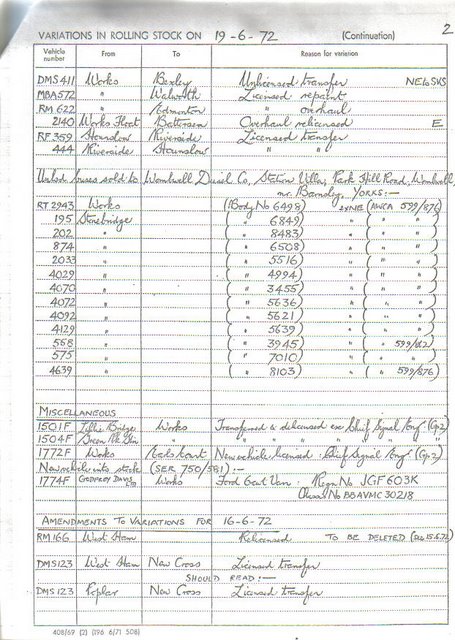 2
VARIATIONS IN ROLLING STOCK ON 19-6-72 (Continuation)
Vehicle number From To Reason for variation
DMS 411 Works Bexley Unlicensed transfer NEW SKS
MBA 572 " Walworth Licensed repaint
RM 622 " Edmonton " overhaul
2140 Works Float Battersea Overhaul relicensed E
RF 359 Hounslow Riverside Licensed transfer
444 Riverside Hounslow " "
buses sold to Wombwell Diesel Co, Station Villas, Park Hill Road, Wombwell,
nr. Barnsley, YORKS:-
RT 2943 Works (Body No 6498) (AWCA 599/876)
195 Stonebridge ( " 6849) " ( " " )
202 " ( " 8483) " ( " " )
874 " ( " 6508) " ( " " )
2033 " ( " 5516) " ( " " )
4029 " ( " 4994) " ( " " )
4070 " ( " 3455) " ( " " )
4072 " ( " 5636) " ( " " )
4092 " ( " 5621) " ( " " )
4129 " ( " 5639) " ( " " )
568 " ( " 3945) " ( " 599/882)
575 " ( " 7010) " ( " " )
4639 " ( " 8103) " ( " 599/876)
MISCELLANEOUS
1501F Lillie Bridge Works Transferred & delicensed ex Chief Signal Eng' (Gp2)
1504F " " " " " "
1772F Works Earls Court New vehicle licensed: Chief Signal Eng' (Gp2)
New vehicle into stock (SER 750/381):-
1774F GODFREY DAVIS LTD Works Ford 6cwt Van: Regn No JGF 603K
Chassis No BBAVMC 30218
AMENDMENTS TO VARIATIONS FOR 16-6-72
RM 166 West Ham Relicensed TO BE DELETED
DMS 123 West Ham New Cross Licensed transfer
SHOULD READ:-
DMS 123 Poplar New Cross Licensed transfer
408/69 (2) (196 6/71 508)